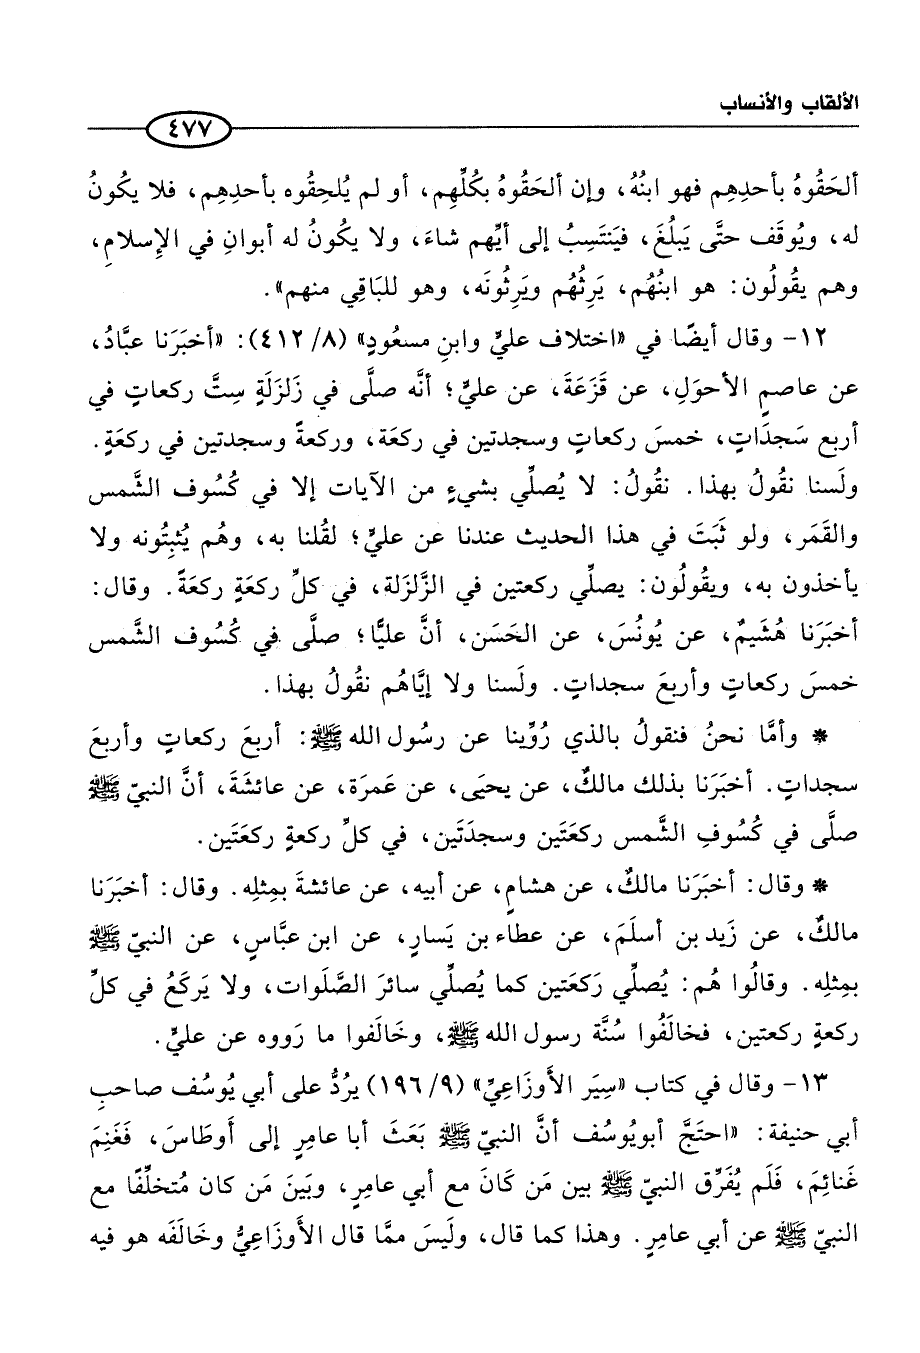 الألقاب والأنساب
٤٧٧
ألحَقُوهُ بأحدِهِم فهو ابنُهُ، وإن ألحَقُوهُ بكُلِّهِم، أو لم يُلحِقُوه بأحدِهِم، فلا يكونُ
له، ويُوقَف حتَّى يَبلُغَ، فيَنتَسِبُ إلى أيِّهم شاءَ، ولا يكونُ له أبوانِ في الإسلامِ،
وهم يقُولُون: هو ابنُهُم، يَرِثُهُم ويَرِثُونَه، وهو للبَاقِي منهم».
١٢- وقال أيضًا في «اختلاف عليٍّ وابنِ مسعُودٍ» (٨/ ٤١٢): «أخبَرَنا عبَّادُ،
عن عاصمٍ الأحوَلِ، عن قَزَعَةَ، عن عليٍّ؛ أنَّه صلَّى في زَلزَلَةٍ سِتَّ ركعاتٍ في
أربع سَجدَاتٍ، خمسَ ركعاتٍ وسجدتين في ركعَة، وركعةً وسجدتين في ركعَةٍ.
ولَسنا نقُولُ بهذا. نقُولُ: لا يُصلِّي بشيءٍ من الآيات إلا في كُسُوف الشَّمس
والقَمَر، ولو ثَبَتَ في هذا الحديث عندنا عن عليٍّ؛ لقُلنا به، وهُم يُثبِتُونه ولا
يأخذون به، ويقُولُون: يصلِّي ركعتين في الزَّلزَلة، في كلِّ ركعَةٍ ركعَةً. وقال:
أخبَرَنا هُشَيمٌ، عن يُونُسَ، عن الحَسَن، أنَّ عليًّا؛ صلَّى في كُسُوف الشَّمس
خمسَ ركعاتٍ وأربعَ سجداتٍ. ولَسنا ولا إيَّاهُم نقُولُ بهذا.
* وأمَّا نحنُ فنقولُ بالذي رُوِّينا عن رسُول الله ﷺ: أربعَ ركعاتٍ وأربعَ
سجداتٍ. أخبَرَنا بذلك مالكٌ، عن يحيَى، عن عَمرَة، عن عائشَةَ، أنَّ النبيّ ﷺ
صلَّى في كُسُوفِ الشَّمس ركعَتَين وسجدَتَين، في كلِّ ركعةٍ ركعَتَين.
* وقال: أخبَرَنا مالكٌ، عن هشامٍ، عن أبيه، عن عائشةَ بمِثلِه. وقال: أخبَرَنا
مالكٌ، عن زَيد بن أسلَمَ، عن عطاء بن يَسارٍ، عن ابن عبَّاسٍ، عن النبيّ ﷺ
بمِثلِه. وقالُوا هُم: يُصلِّي رَكعَتَين كما يُصلِّي سائرَ الصَّلَوات، ولا يَركَعُ في كلِّ
ركعةٍ ركعتين، فخالَفُوا سُنَّة رسول الله ﷺ، وخَالَفوا ما رَووه عن عليٍّ.
١٣- وقال في كتاب «سِيَر الأَوزَاعِيِّ» (٩/ ١٩٦) يرُدُّ على أبي يُوسُف صاحبِ
أبي حنيفة: «احتَجَّ أبويُوسُف أنَّ النبيّ ﷺ بَعَثَ أبا عامِرٍ إلى أَوطَاسَ، فَغَنِمَ
غَنائِمَ، فَلَم يُفَرِّق النبيّ ﷺ بين مَن كَانَ مع أبي عامِرٍ، وبَينَ مَن كان مُتخلِّفًا مع
النبيّ ﷺ عن أبي عامِرٍ. وهذا كما قال، ولَيسَ ممَّا قال الأَوزَاعِيُّ وخَالَفَه هو فيه